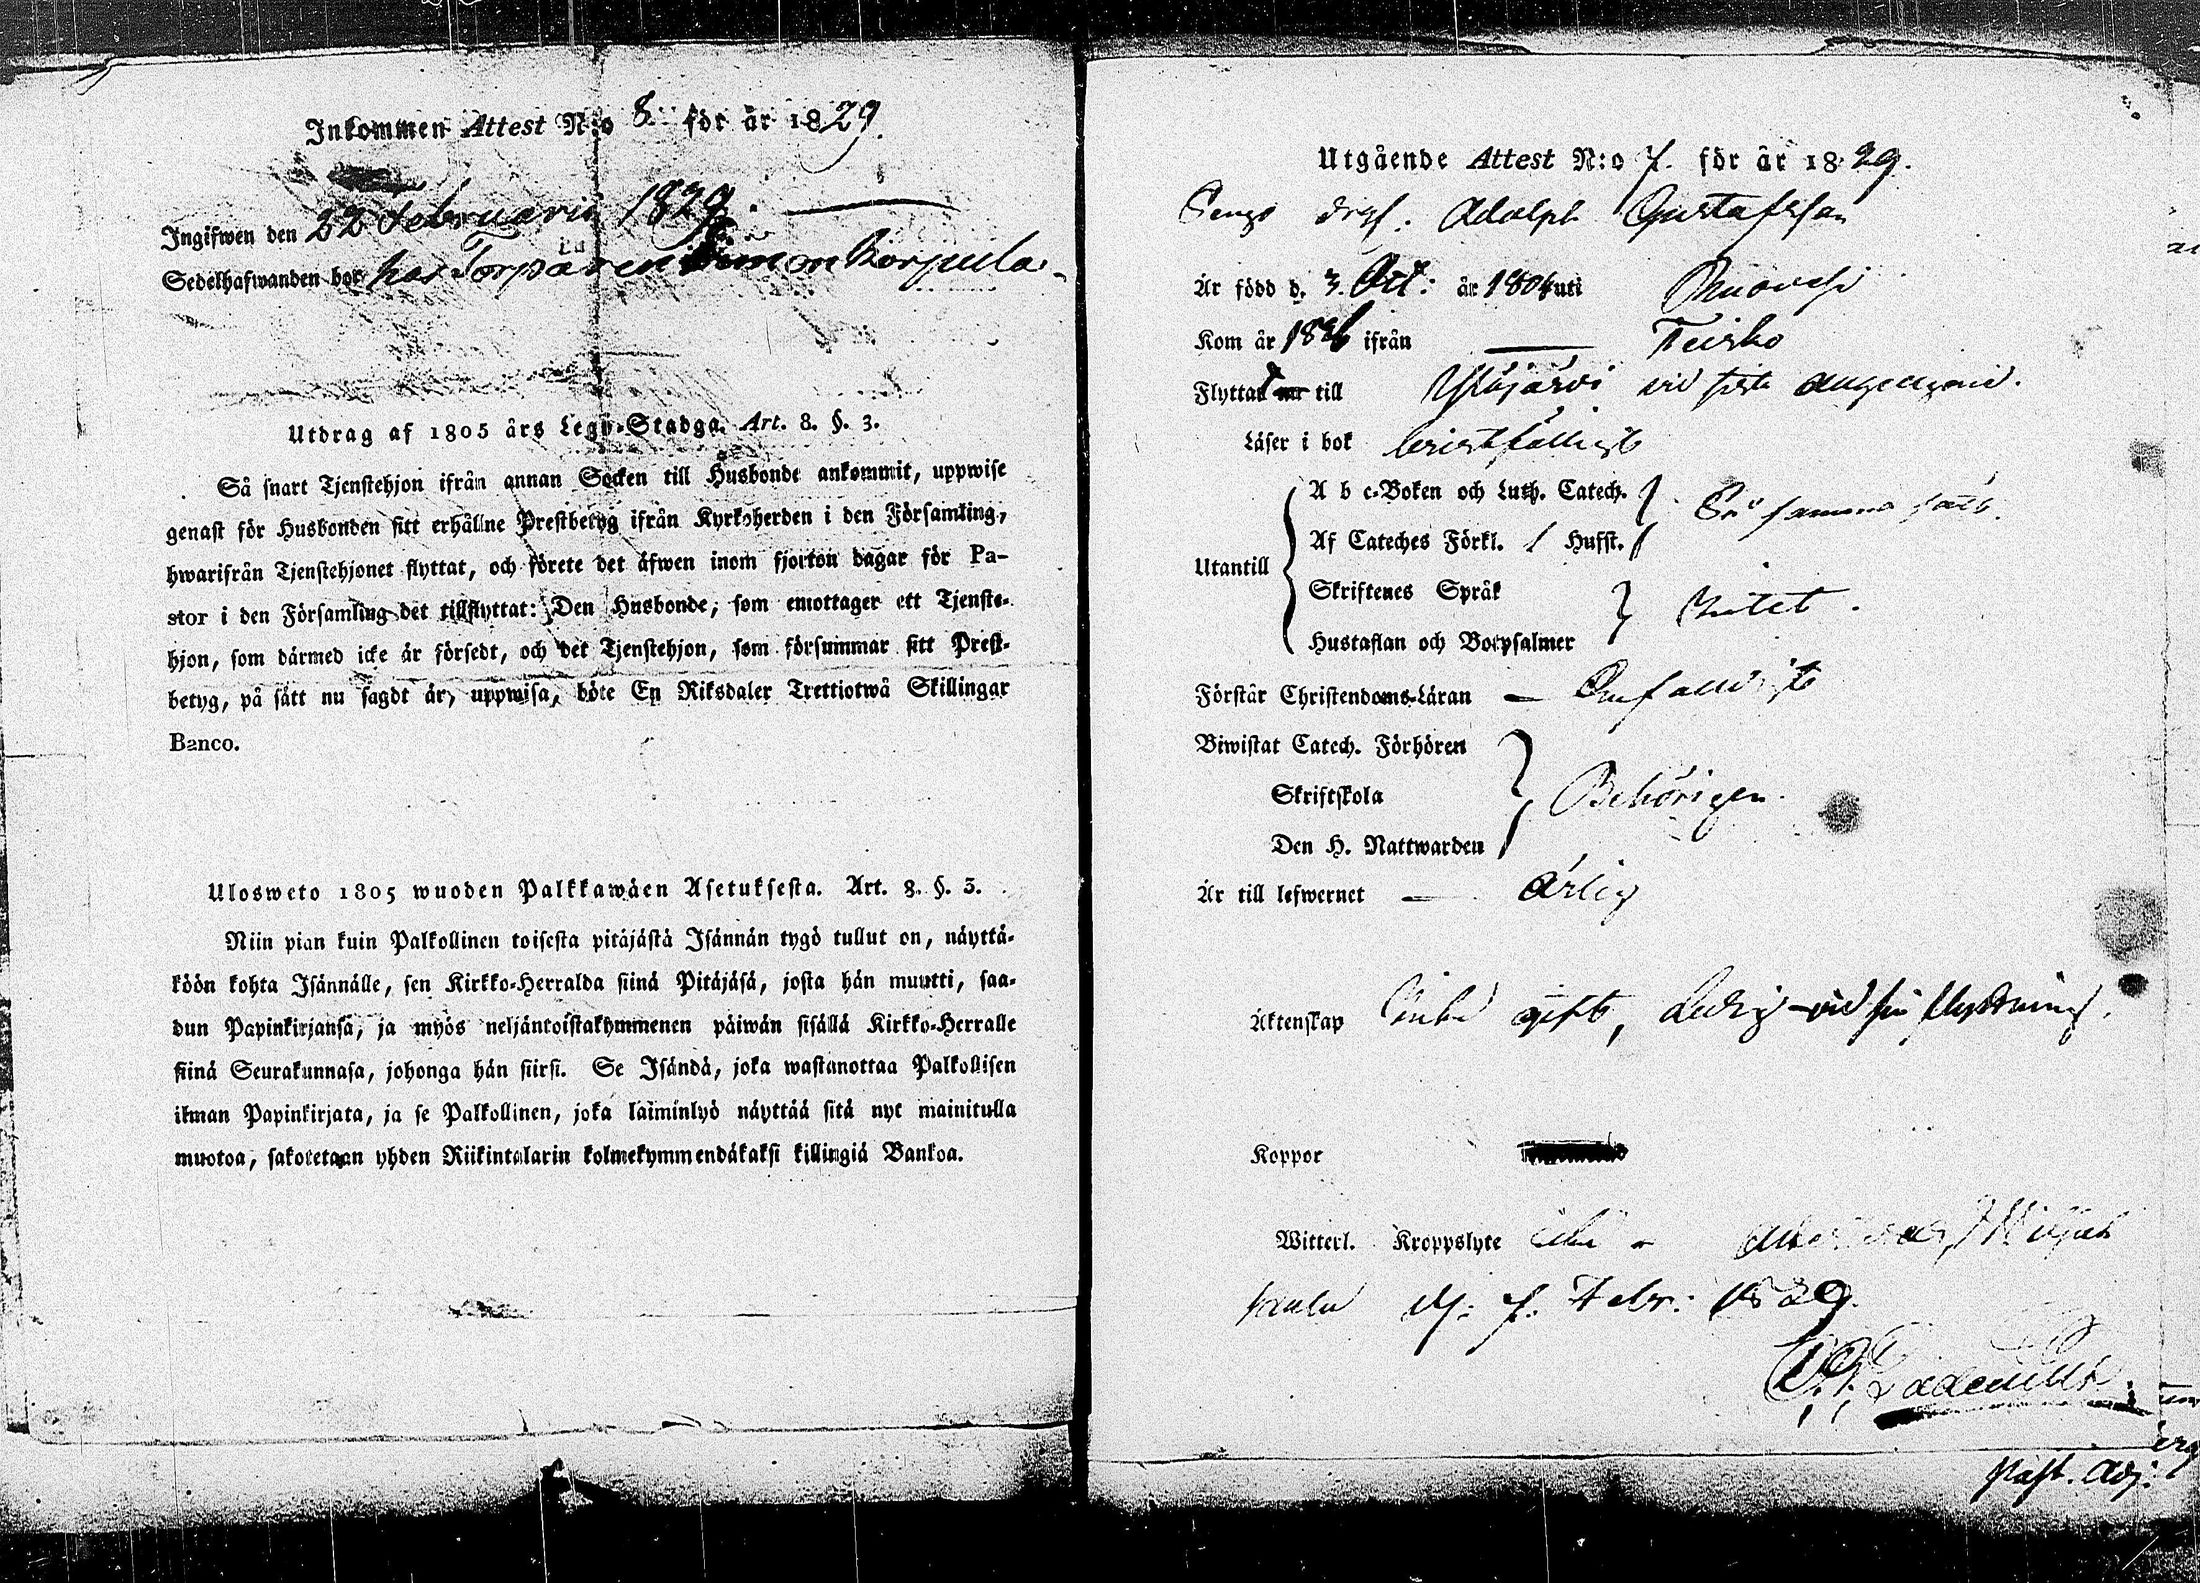 Inkommen Attest N:o 8. för år 1829.
Ingifwen den 22 Februarii 1829.
Sedelhafwanden bor hos Torparen Simon Korpula
Utdrag af 1805 års Lego-Stadga. Art. 8. §. 3.
Så snart Tjenstehjon ifrån annan Socken till Husbonde ankommit, uppwise
genast för Husbonden sitt erhållne Prestbetyg ifrån Kyrkoherden i den Församling,
hwarifrån Tjenstehjonet flyttat, och förete det äfwen inom fjorton dagar för Pa-
stor i den Församling det tillflyttat: Den Husbonde, som emottager ett Tjenste-
hjon, som därmed icke är försedt, och det Tjenstehjon, som försummar sitt Prest-
betyg, på sätt nu sagdt är, uppwisa, böte En Riksdaler Trettiotwå Skillingar
Banco.
Ulosweto 1805 wuoden Palkkawäen Asetuksesta. Art. 8. §. 3.
Niin pian kuin Palkollinen toisesta pitäjästä Isännän tygö tullut on, näyttä-
köön kohta Isännälle, sen Kirkko-Herralda siinä Pitäjäsä, josta hän muutti, saa-
dun Papinkirjansa, ja myös neljäntoistakymmenen päiwän sisällä Kirkko-Herralle
siinä Seurakunnasa, johonga hän siirsi. Se Isändä, joka wastanottaa Palkollisen
ilman Papinkirjata, ja se Palkollinen, joka laiminlyö näyttää sitä nyt mainitulla
muotoa, sakotetaan yhden Riikintalarin kolmekymmendäkaksi killingiä Bankoa.
Utgående Attest N:o 7. för år 1829.
Adolph Gustafsson
Är född d. 3. Oct: år 1804 uti Ruovesi
Kom år 1826 ifrån Teisko
Flyttade till Ylöjärvi vid sista
Läser i bok bristfälligt
A b c-Boken och Luth. Catech.
Af Cateches Förkl. / Husst.
Utantill
Skriftenes Språk
Hustaflan och Botpsalmer
Intet.
Förstår Christendoms-Läran Enfaldigt
Biwistat Catech. Förhören
Skriftskola
Behörigen.
Den H. Nattwarden
Är till lefwernet ärlig
Äktenskap gift, ledig vid sin flyttning.
Koppor
Witterl. Kroppslyte
d. 7. Febr: 1829.
Past. Adj: